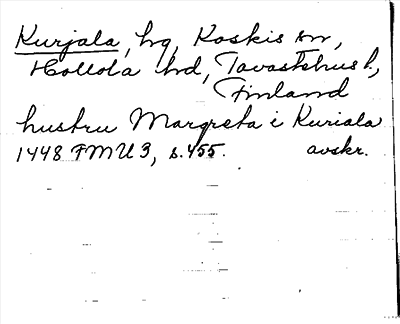 Kurjala, hg, Koskis sn,
Hollola hd, Tavastehus l.,
Finland
hustru Margreta i Kuriala
1448 FMU 3, s. 455. avskr.